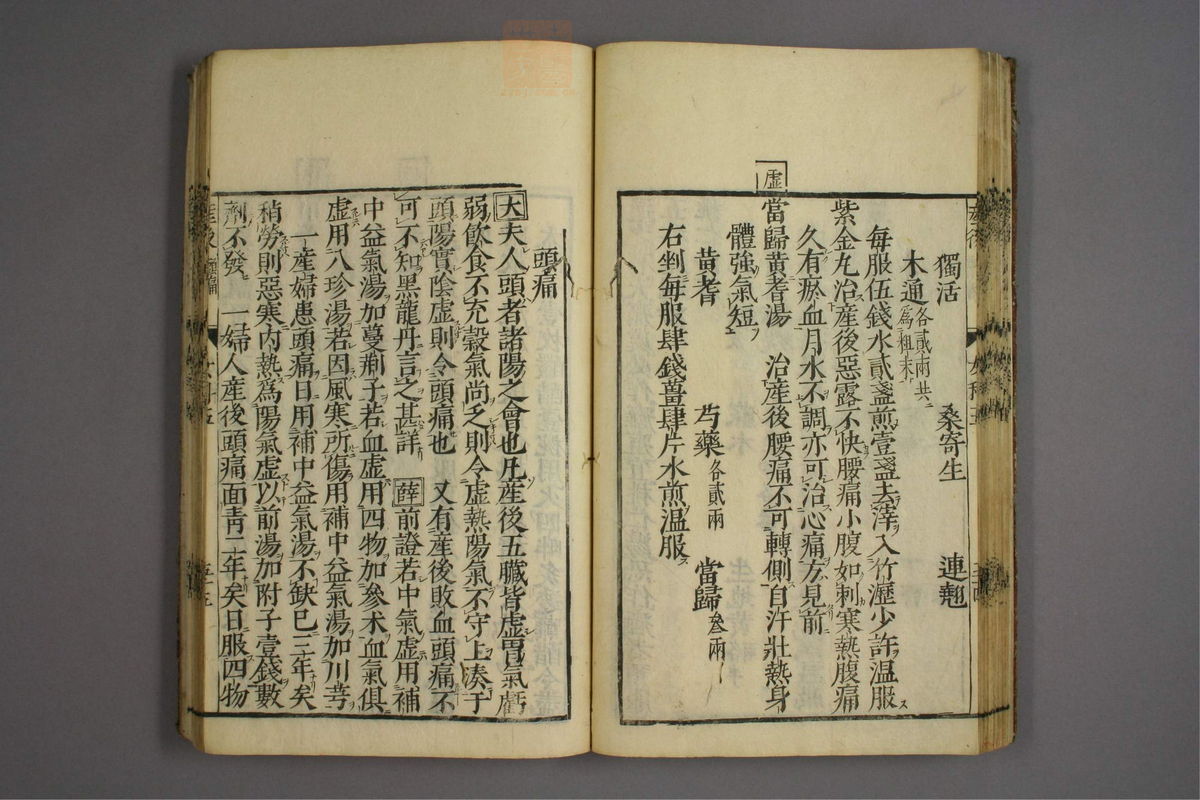 獨活　桑寄生　連翹
木通各貳兩共爲粗末
每服伍錢水貳盞煎壹盞去滓入竹瀝少許溫服
紫金丸治產後惡露不快腰痛小腹如刺寒熱腹痛
久有瘀血月水不調亦可治心痛方見前
虛 當歸黃耆湯　治產後腰痛不可轉側自汗壯熱身
體強氣短
黃耆　芍藥各貳兩　當歸叄兩
右剉每服肆錢薑肆片水煎溫服
頭痛
大 夫人頭者諸陽之會也凡產後五臟皆虛胃氣虧
弱飲食不充穀氣尚乏則令虛熱陽氣不守上湊于
頭陽實陰虛則令頭痛也　又有產後敗血頭痛不
可不知黑龍丹言之甚詳　薛 前證若中氣虛用補
中益氣湯加蔓荊子若血虛用四物加參朮血氣俱
虛用八珍湯若因風寒所傷用補中益氣湯加川芎
一產婦患頭痛日用補中益氣湯不缺已三年矣
稍勞則惡寒内熱爲陽氣虛以前湯加附子壹錢數
劑不發　一婦人產後頭痛面青二年矣日服四物